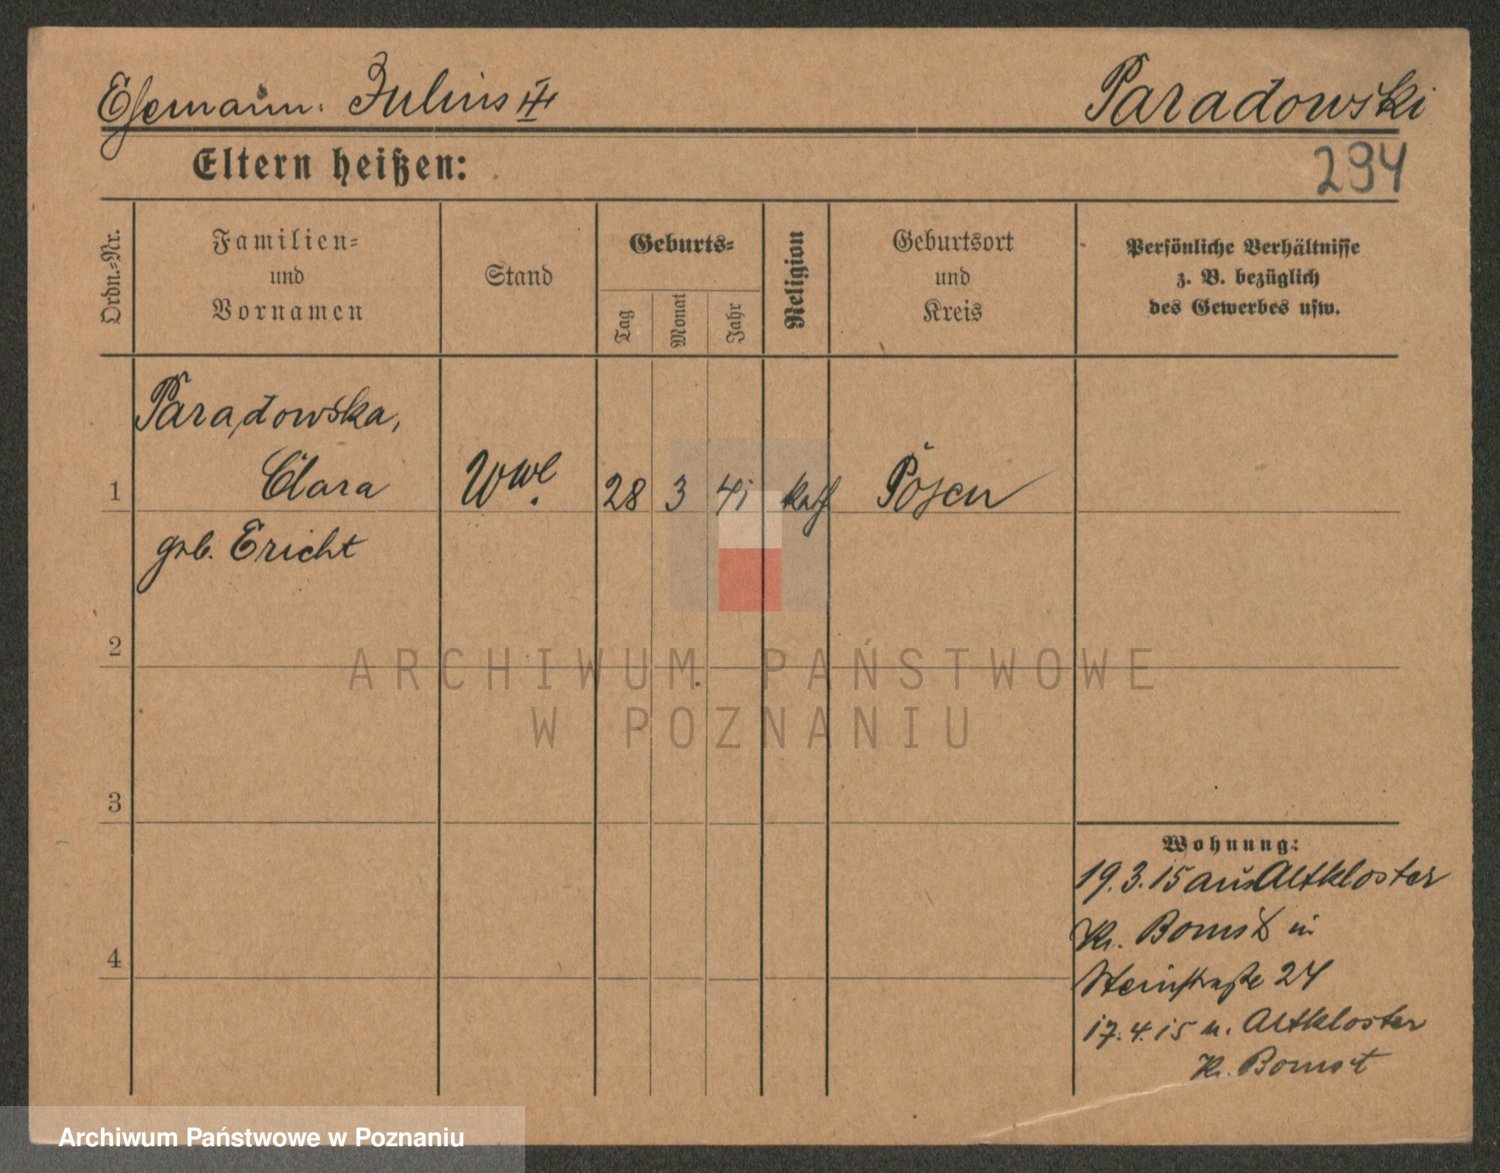 Ehemann: Julius III Paradowski
Eltern heißen:
294
Ordn.-Nr.
Familien-
und
Vornamen
Stand
Geburts-
Tag
Monat
Jahr
Religion
Geburtsort
und
Kreis
Persönliche Verhältnisse
z. B. bezüglich
des Gewerbes usw.
Paradowska,
1 Clara Wwe. 28 3 41 kath Posen
geb. Ericht
2
ARCHIWUM PAŃSTWOWE
W POZNANIU
3
Wohnung:
19.3.15 aus Altkloster
Kr. Bomst in
4
Steinstraße 24
17.4.15 n. Altkloster
Kr. Bomst
Archiwum Państwowe w Poznaniu